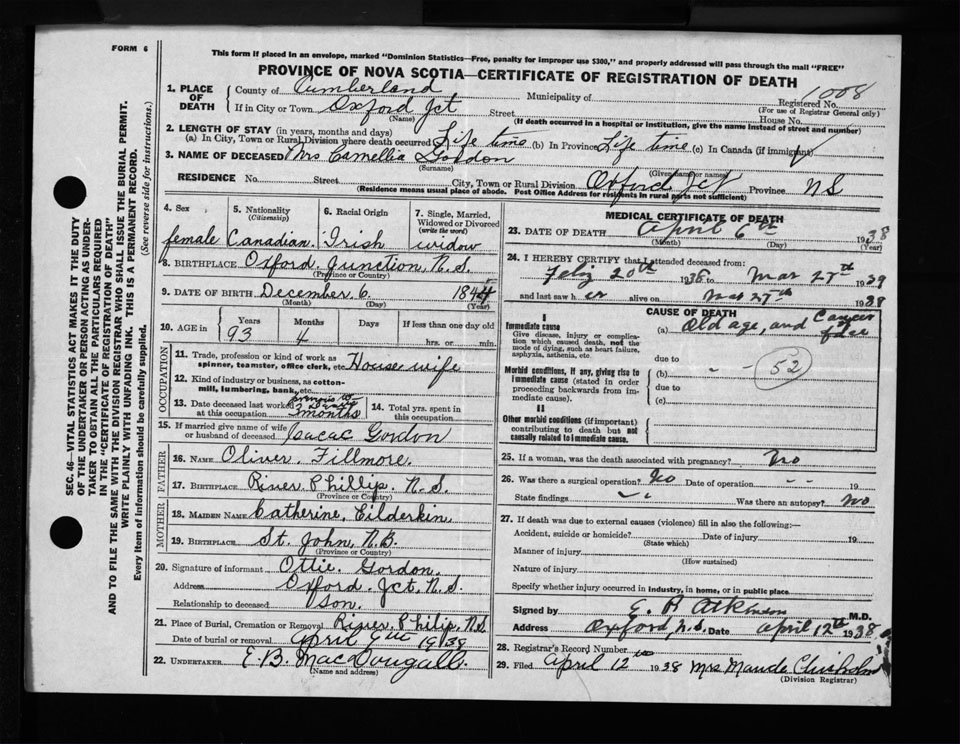 FORM 6
This form if placed in an envelope, marked "Dominion Statistics—Free, penalty for improper use $300," and properly addressed will pass through the mail "FREE"
PROVINCE OF NOVA SCOTIA—CERTIFICATE OF REGISTRATION OF DEATH
1. PLACE OF DEATH
County of Cumberland Municipality of Registered No. 1008
(For use of Registrar General only)
If in City or Town Oxford Jct Street House No.
(Name) (If death occurred in a hospital or institution, give the name instead of street and number)
2. LENGTH OF STAY (in years, months and days)
(a) In City, Town or Rural Division where death occurred Life time (b) In Province Life time (c) In Canada (if immigrant)
3. NAME OF DECEASED Mrs Camellia Gordon
(Surname) (Given name or names)
RESIDENCE No. Street City, Town or Rural Division Oxford Jct Province N S
(Residence means usual place of abode. Post Office Address for residents in rural parts not sufficient)
4. Sex
female
5. Nationality
(Citizenship)
Canadian.
6. Racial Origin
Irish
7. Single, Married, Widowed or Divorced
(write the word)
widow
8. BIRTHPLACE Oxford Junction, N.S.
(Province or Country)
9. DATE OF BIRTH December 6 1844
(Month) (Day) (Year)
10. AGE in
Years Months Days If less than one day old
93 4 hrs. or min.
OCCUPATION
11. Trade, profession or kind of work as spinner, teamster, office clerk, etc. House wife
12. Kind of industry or business, as cotton-mill, lumbering, bank, etc.
13. Date deceased last worked at this occupation 3 months
14. Total yrs. spent in this occupation
15. If married give name of wife or husband of deceased Isacac Gordon
FATHER
16. NAME Oliver. Fillmore.
17. BIRTHPLACE River Phillip. N.S.
(Province or Country)
MOTHER
18. MAIDEN NAME Catherine. Eilderkin
19. BIRTHPLACE St. John, N.B.
(Province or Country)
20. Signature of informant Ottie. Gordon.
Address Oxford. Jct. N.S.
Relationship to deceased son.
21. Place of Burial, Cremation or Removal River Philip, N.S.
Date of burial or removal April 19 38
22. UNDERTAKER E.B. MacDougall.
(Name and address)
MEDICAL CERTIFICATE OF DEATH
23. DATE OF DEATH April 6th 1938
(Month) (Day) (Year)
24. I HEREBY CERTIFY that I attended deceased from:
20th 1938 to Mar 27th 1939
and last saw h er alive on Mar 27th 1938
CAUSE OF DEATH
I
Immediate cause
Give disease, injury or complication which caused death, not the mode of dying, such as heart failure, asphyxia, asthenia, etc.
(a) Old age, and Cancer of face
due to
Morbid conditions, if any, giving rise to immediate cause (stated in order proceeding backwards from immediate cause).
(b) " "
52
due to
(c)
II
Other morbid conditions (if important) contributing to death but not causally related to immediate cause.
25. If a woman, was the death associated with pregnancy? No
26. Was there a surgical operation? No Date of operation - - 19
State findings Was there an autopsy? No
27. If death was due to external causes (violence) fill in also the following:—
Accident, suicide or homicide? Date of injury 19
(State which)
Manner of injury
(How sustained)
Nature of injury
Specify whether injury occurred in industry, in home, or in public place
Signed by E. P. Atkinson M.D.
Address Oxford, N.S. Date April 12th 1938
28. Registrar's Record Number
29. Filed April 12 1938 Mrs Maude Chisholm
(Division Registrar)
SEC. 46—VITAL STATISTICS ACT MAKES IT THE DUTY
OF THE UNDERTAKER OR PERSON ACTING AS UNDER-
TAKER TO OBTAIN ALL THE PARTICULARS REQUIRED
IN THE "CERTIFICATE OF REGISTRATION OF DEATH"
AND TO FILE THE SAME WITH THE DIVISION REGISTRAR WHO SHALL ISSUE THE BURIAL PERMIT.
WRITE PLAINLY WITH UNFADING INK. THIS IS A PERMANENT RECORD.
Every item of information should be carefully supplied. (See reverse side for instructions.)